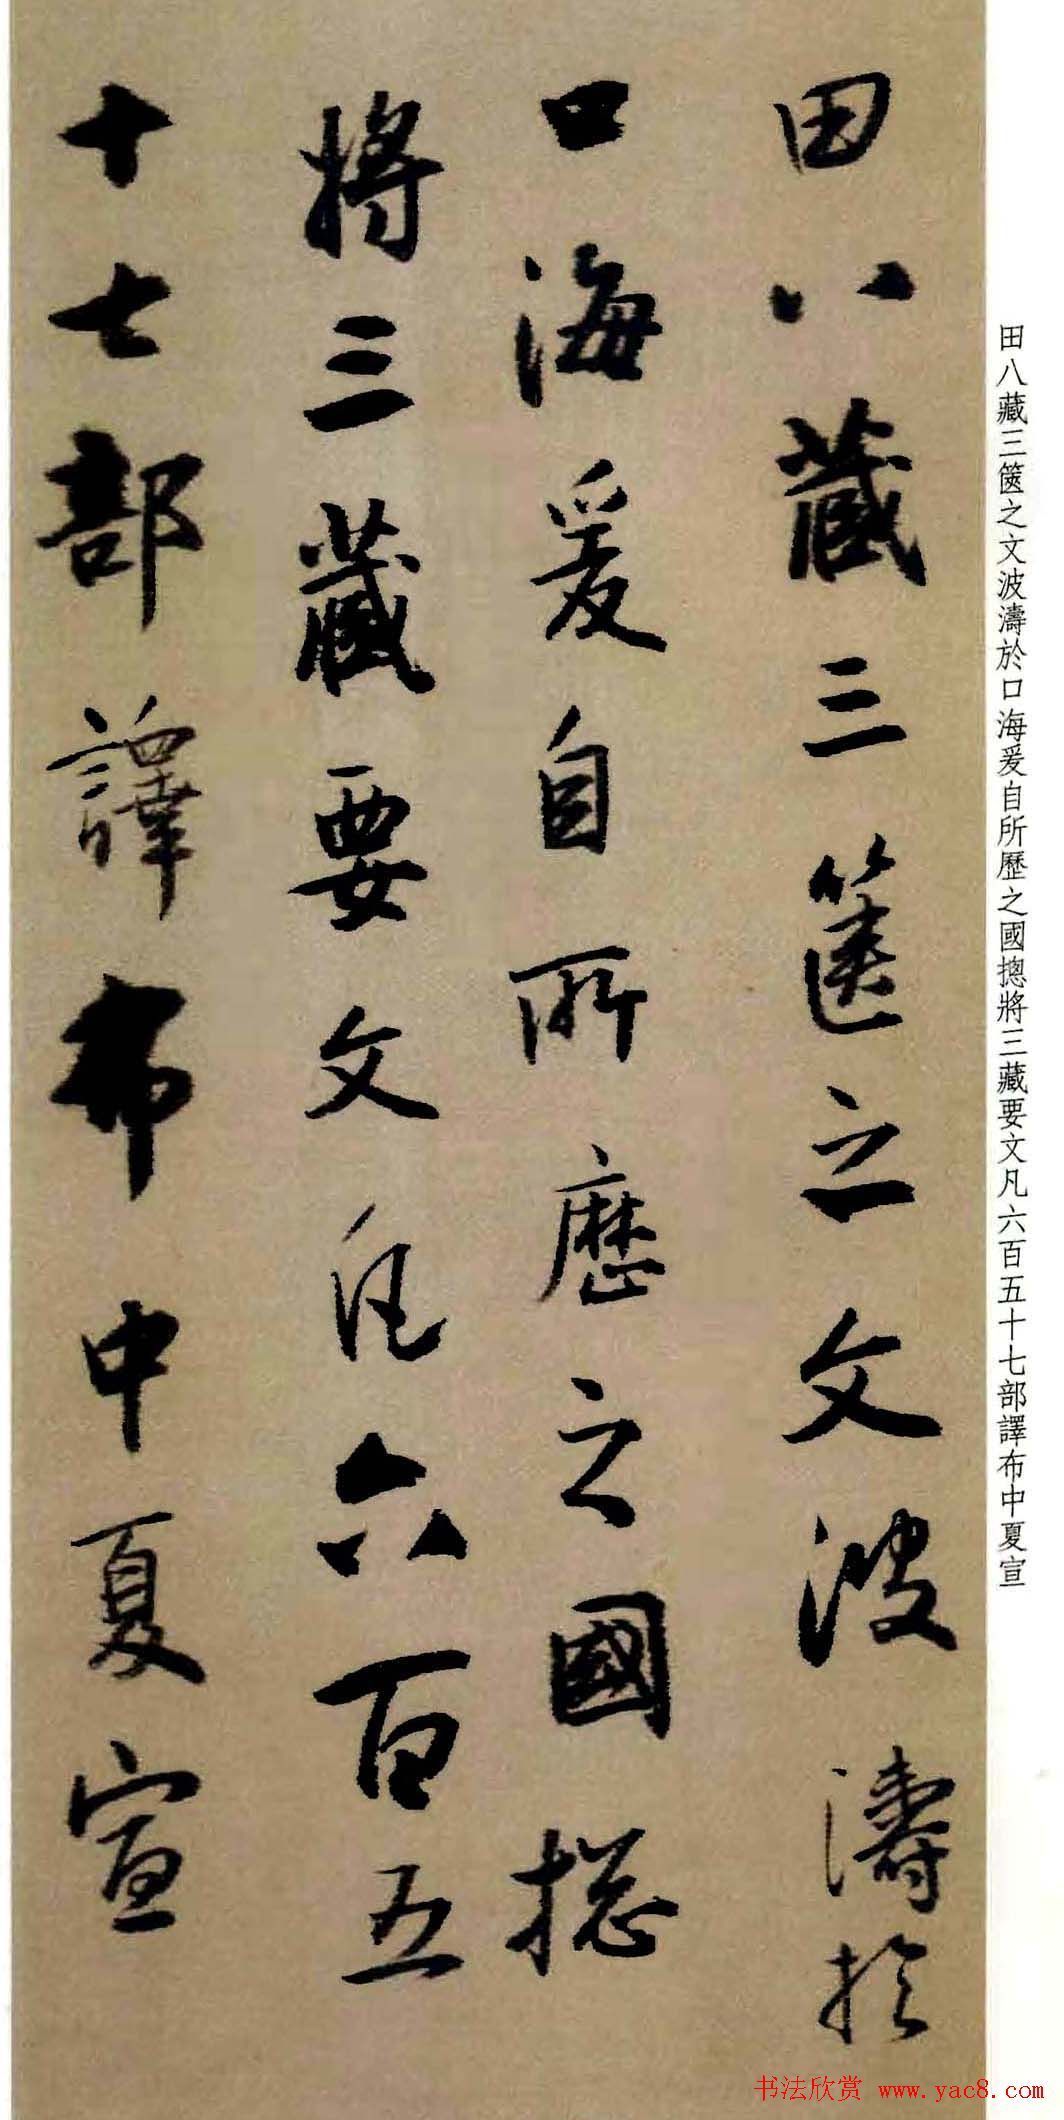 田八藏三箧之文波濤於
口海爰自所歷之國揔
將三藏要文凡六百五
十七部譯布中夏宣
田八藏三篋之文波濤於口海爰自所歷之國摠將三藏要文凡六百五十七部譯布中夏宣
书法欣赏 www.yac8.com